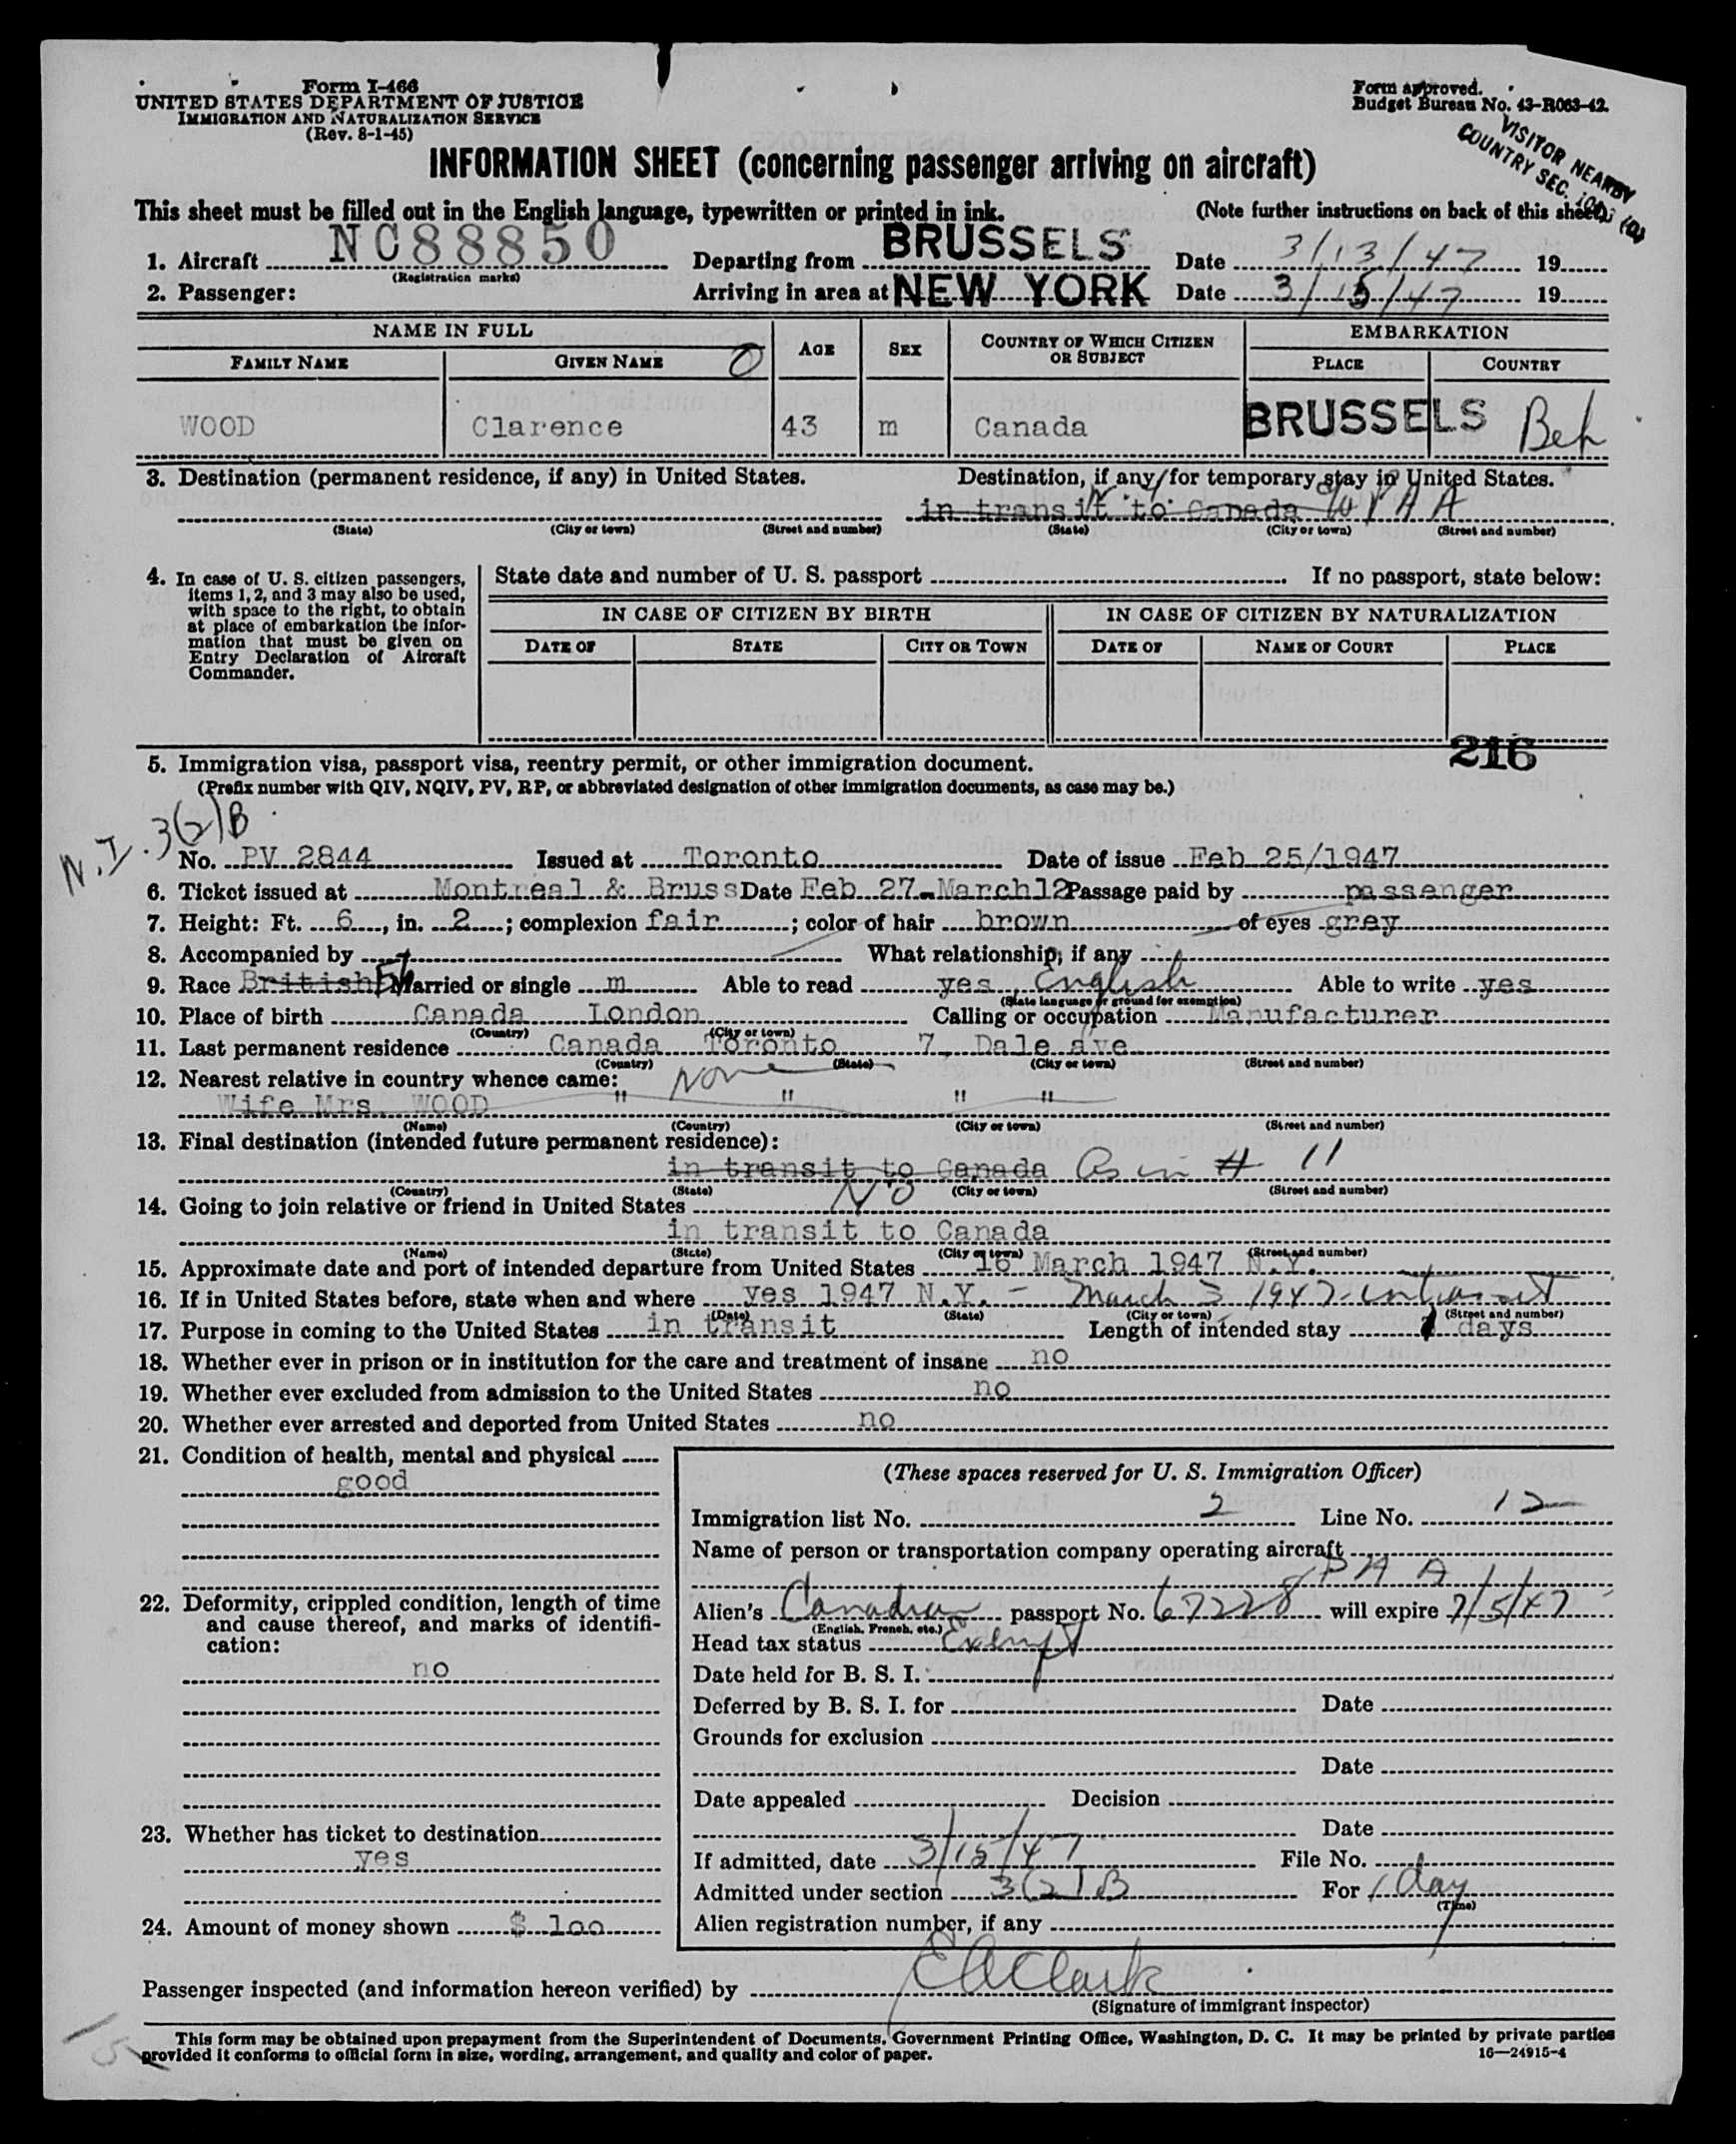 Form I-466
UNITED STATES DEPARTMENT OF JUSTICE
IMMIGRATION AND NATURALIZATION SERVICE
(Rev. 8-1-45)
Form approved.
Budget Bureau No. 43-R063-42.
VISITOR NEARBY
COUNTRY SEC.
INFORMATION SHEET (concerning passenger arriving on aircraft)
This sheet must be filled out in the English language, typewritten or printed in ink. (Note further instructions on back of this sheet)
1. Aircraft NC88850 Departing from BRUSSELS Date 3/13/47 19
(Registration marks)
2. Passenger: Arriving in area at NEW YORK Date 3/15/47 19
NAME IN FULL AGE SEX COUNTRY OF WHICH CITIZEN OR SUBJECT EMBARKATION
FAMILY NAME GIVEN NAME 0 PLACE COUNTRY
WOOD Clarence 43 m Canada BRUSSELS
3. Destination (permanent residence, if any) in United States. Destination, if any, for temporary stay in United States.
in transit to Canada N.Y. c/o PAA
(State) (City or town) (Street and number) (State) (City or town) (Street and number)
4. In case of U. S. citizen passengers, items 1, 2, and 3 may also be used, with space to the right, to obtain at place of embarkation the information that must be given on Entry Declaration of Aircraft Commander.
State date and number of U. S. passport If no passport, state below:
IN CASE OF CITIZEN BY BIRTH IN CASE OF CITIZEN BY NATURALIZATION
DATE OF STATE CITY OR TOWN DATE OF NAME OF COURT PLACE
216
5. Immigration visa, passport visa, reentry permit, or other immigration document.
(Prefix number with QIV, NQIV, PV, RP, or abbreviated designation of other immigration documents, as case may be.)
N.I. 3(2)B
No. PV 2844 Issued at Toronto Date of issue Feb 25/1947
6. Ticket issued at Montreal & Bruss Date Feb 27-March12 Passage paid by passenger
7. Height: Ft. 6, in. 2; complexion fair; color of hair brown of eyes grey
8. Accompanied by What relationship, if any
9. Race British Married or single m Able to read yes, English Able to write yes
(State language or ground for exemption)
10. Place of birth Canada London Calling or occupation Manufacturer
(Country) (City or town)
11. Last permanent residence Canada Toronto 7, Dale ave
(Country) (State) (City or town) (Street and number)
12. Nearest relative in country whence came: None
Wife Mrs. WOOD " " " "
(Name) (Country) (City or town) (Street and number)
13. Final destination (intended future permanent residence):
in transit to Canada As in # 11
(Country) (State) (City or town) (Street and number)
14. Going to join relative or friend in United States No
in transit to Canada
(Name) (State) (City or town) (Street and number)
15. Approximate date and port of intended departure from United States 16 March 1947 N.Y.
16. If in United States before, state when and where yes 1947 N.Y. - March 3 1947 - in transit
(Date) (State) (City or town) (Street and number)
17. Purpose in coming to the United States in transit Length of intended stay days
18. Whether ever in prison or in institution for the care and treatment of insane no
19. Whether ever excluded from admission to the United States no
20. Whether ever arrested and deported from United States no
21. Condition of health, mental and physical
good
22. Deformity, crippled condition, length of time and cause thereof, and marks of identification:
no
23. Whether has ticket to destination
yes
24. Amount of money shown $ 100
(These spaces reserved for U. S. Immigration Officer)
Immigration list No. 2 Line No. 12
Name of person or transportation company operating aircraft
PAA
Alien's Canadian passport No. 67228 will expire 7/5/47
(English, French, etc.)
Head tax status Exempt
Date held for B. S. I.
Deferred by B. S. I. for Date
Grounds for exclusion
Date
Date appealed Decision
Date
If admitted, date 3/15/47 File No.
Admitted under section 3(2)B For 1 day
(Time)
Alien registration number, if any
Passenger inspected (and information hereon verified) by EAClark
(Signature of immigrant inspector)
This form may be obtained upon prepayment from the Superintendent of Documents, Government Printing Office, Washington, D. C. It may be printed by private parties
provided it conforms to official form in size, wording, arrangement, and quality and color of paper. 16—24915-4